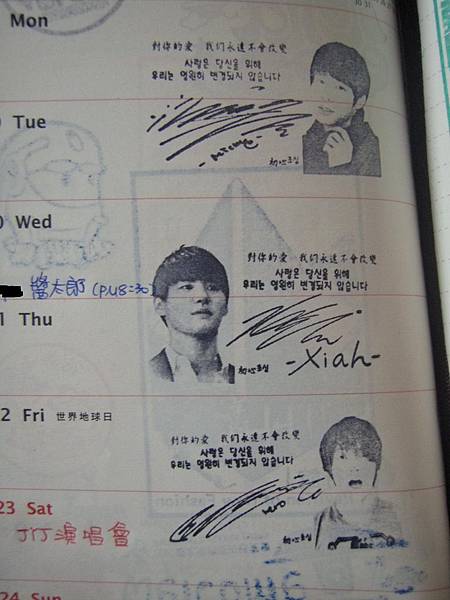 Mon
對你的愛 我们永遠不會改變
사랑은 당신을 위해
우리는 영원히 변경되지 않습니다
Tue
-micky-
初心 초심
Wed
對你的愛 我们永遠不會改變
사랑은 당신을 위해
우리는 영원히 변경되지 않습니다
醬太郎 (PM8:30)
1 Thu
-Xiah-
初心 초심
2 Fri 世界地球日
對你的愛 我们永遠不會改變
사랑은 당신을 위해
우리는 영원히 변경되지 않습니다
23 Sat
JYJ演唱會
hero
初心 초심
24 Sun